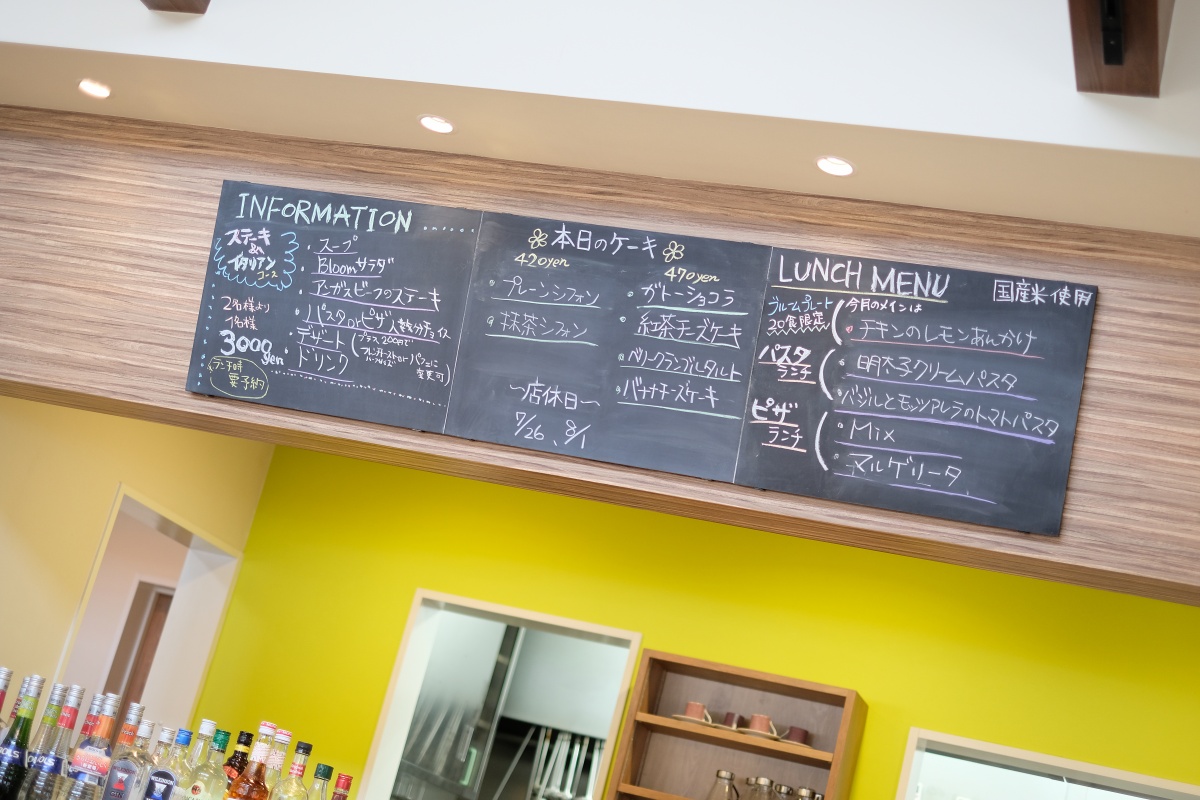 INFORMATION
ステーキ
&
イタリアン
コース
2名様より
1名様
3000yen
ランチ時
要予約
・スープ
・Bloomサラダ
・アンガスビーフのステーキ
・パスタorピザ 人数分チョイス
・デザート
・ドリンク
プラス200円で
変更可
本日のケーキ
420yen
・プレーンシフォン
・抹茶シフォン
470yen
・ガトーショコラ
・紅茶チーズケーキ
・ベリークランブルタルト
・バナナチーズケーキ
〜店休日〜
7/26、8/1
LUNCH MENU
国産米使用
ブルームプレート
20食限定
今月のメインは
・チキンのレモンあんかけ
パスタ
ランチ
・明太子クリームパスタ
・バジルとモッツアレラのトマトパスタ
ピザ
ランチ
・Mix
・マルゲリータ